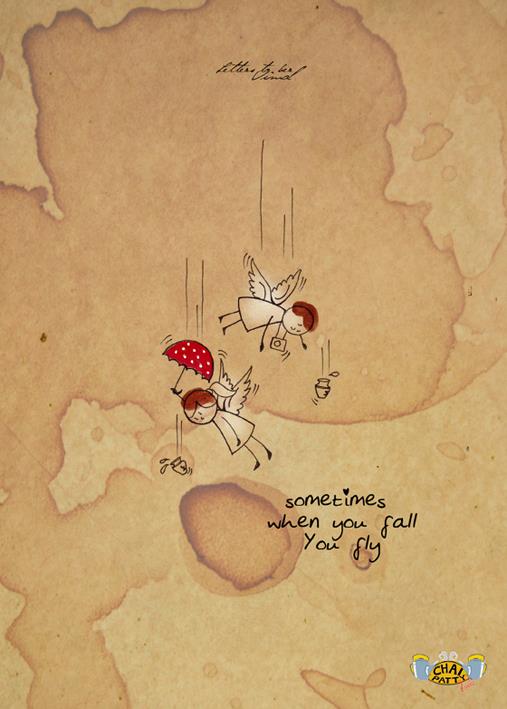 Letters to her
Vimal
sometimes
when you fall
You fly
CHAI
PATTY